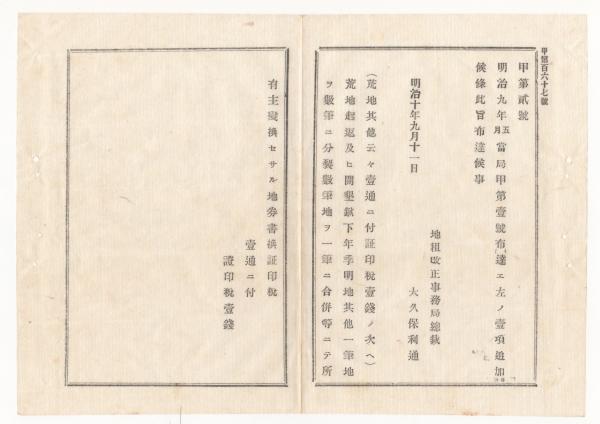 甲第百六十七號
甲第貳號
明治九年五月當局甲第壹號布達エ左ノ壹項追加
候條此旨布達候事
明治十年九月十一日
地租改正事務局總裁
大久保利通
(荒地其他云々壹通ニ付証印税壹錢ノ次ヘ)
荒地起返及ヒ開墾鍬下年季明地其他一筆地
ヲ數筆ニ分裂數筆地ヲ一筆ニ合併等ニテ所
有主變換セサル地券書換証印税
壹通ニ付
證印税壹錢